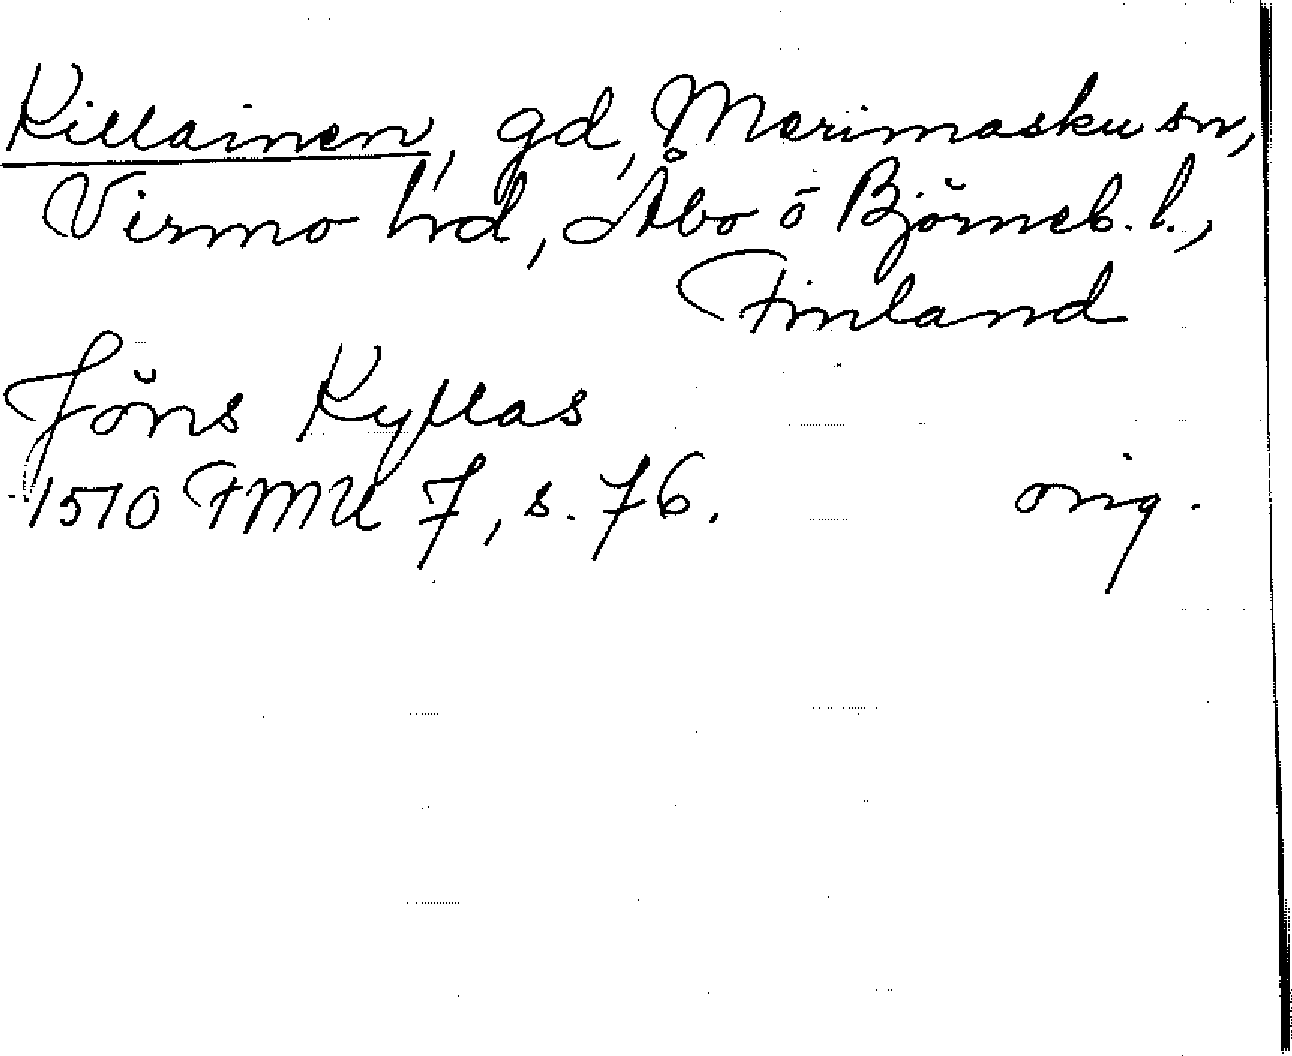 Killainen, gd, Merimasku sn,
Virmo hd, Åbo o Björneb. l.,
Finland
Jöns Kyllas
1510 FMU 7, s. 76. orig.